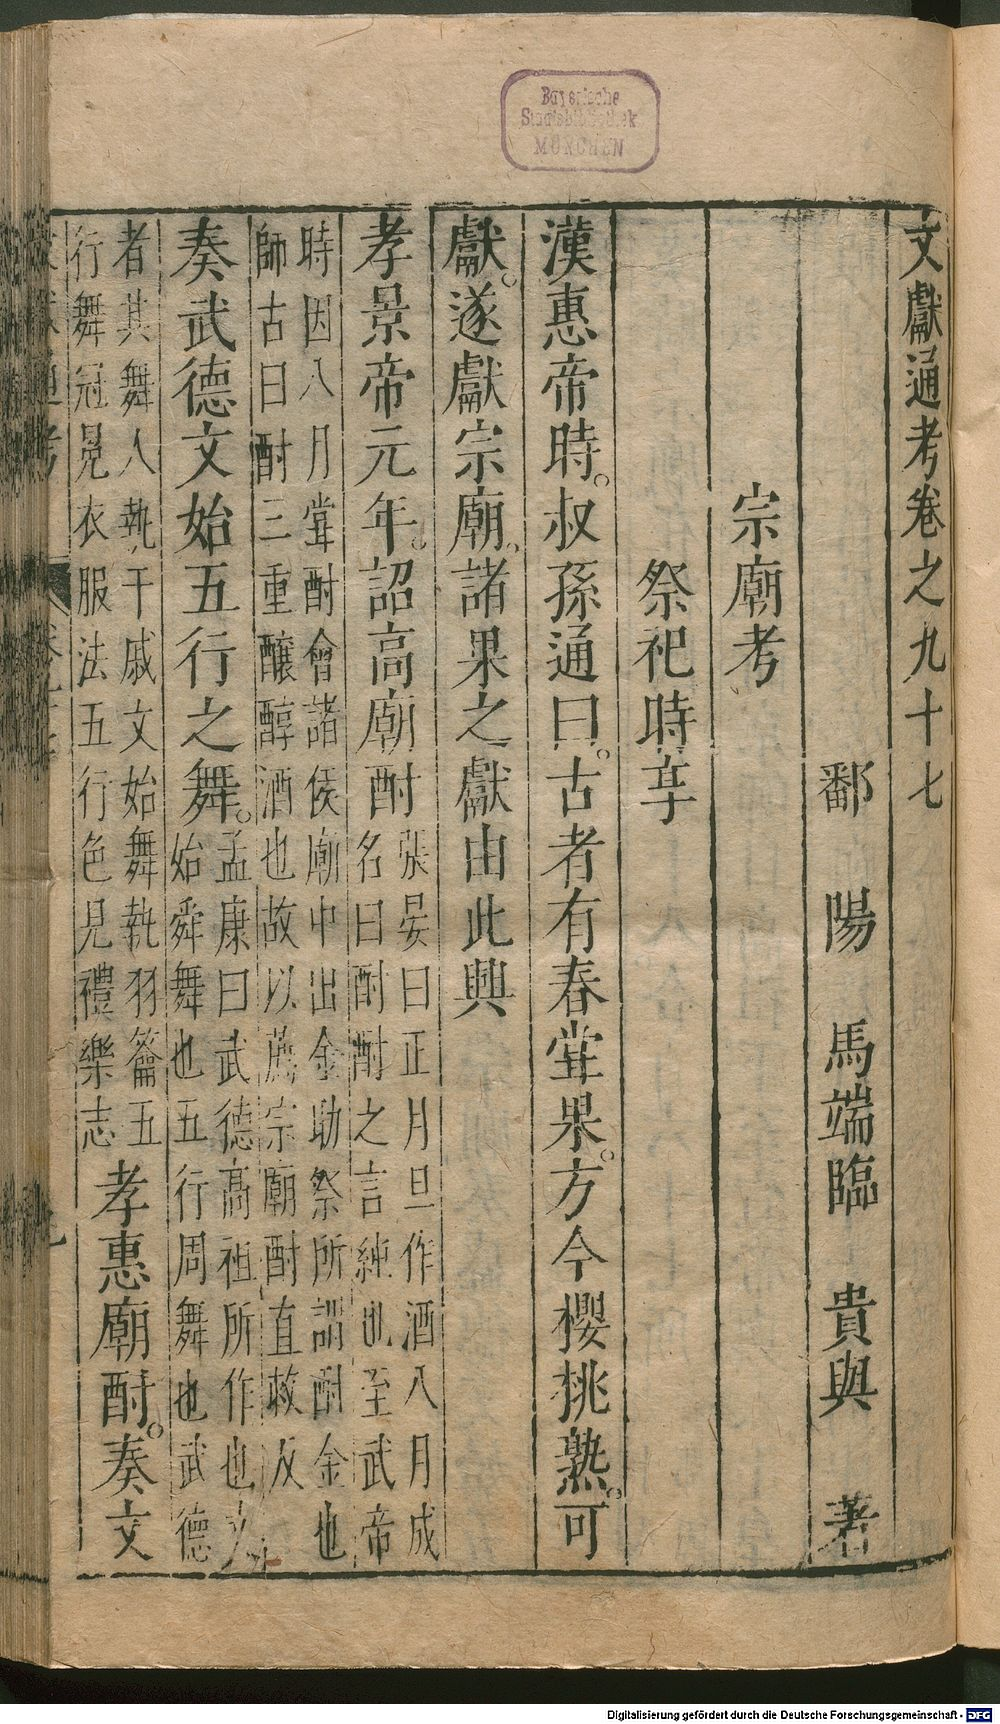 Bayerische
Staatsbibliothek
MÜNCHEN
文獻通考卷之九十七
鄱陽馬端臨貴與著
宗廟考
祭祀時享
漢惠帝時。叔孫通曰。古者有春嘗果。方今櫻挑熟。可
獻。遂獻宗廟。諸果之獻由此興
孝景帝元年。詔高廟酎
張晏曰正月旦作酒八月成
名曰酎酎之言純也至武帝
時因八月嘗酎會諸侯廟中出金助祭所謂酎金也
師古曰酎三重釀醇酒也故以薦宗廟酎直救反
奏武德文始五行之舞。
孟康曰武德高祖所作也文
始舜舞也五行周舞也武德
者其舞人執干戚文始舞執羽籥五
行舞冠冕衣服法五行色見禮樂志
孝惠廟酎。奏文
Digitalisierung gefördert durch die Deutsche Forschungsgemeinschaft - DFG